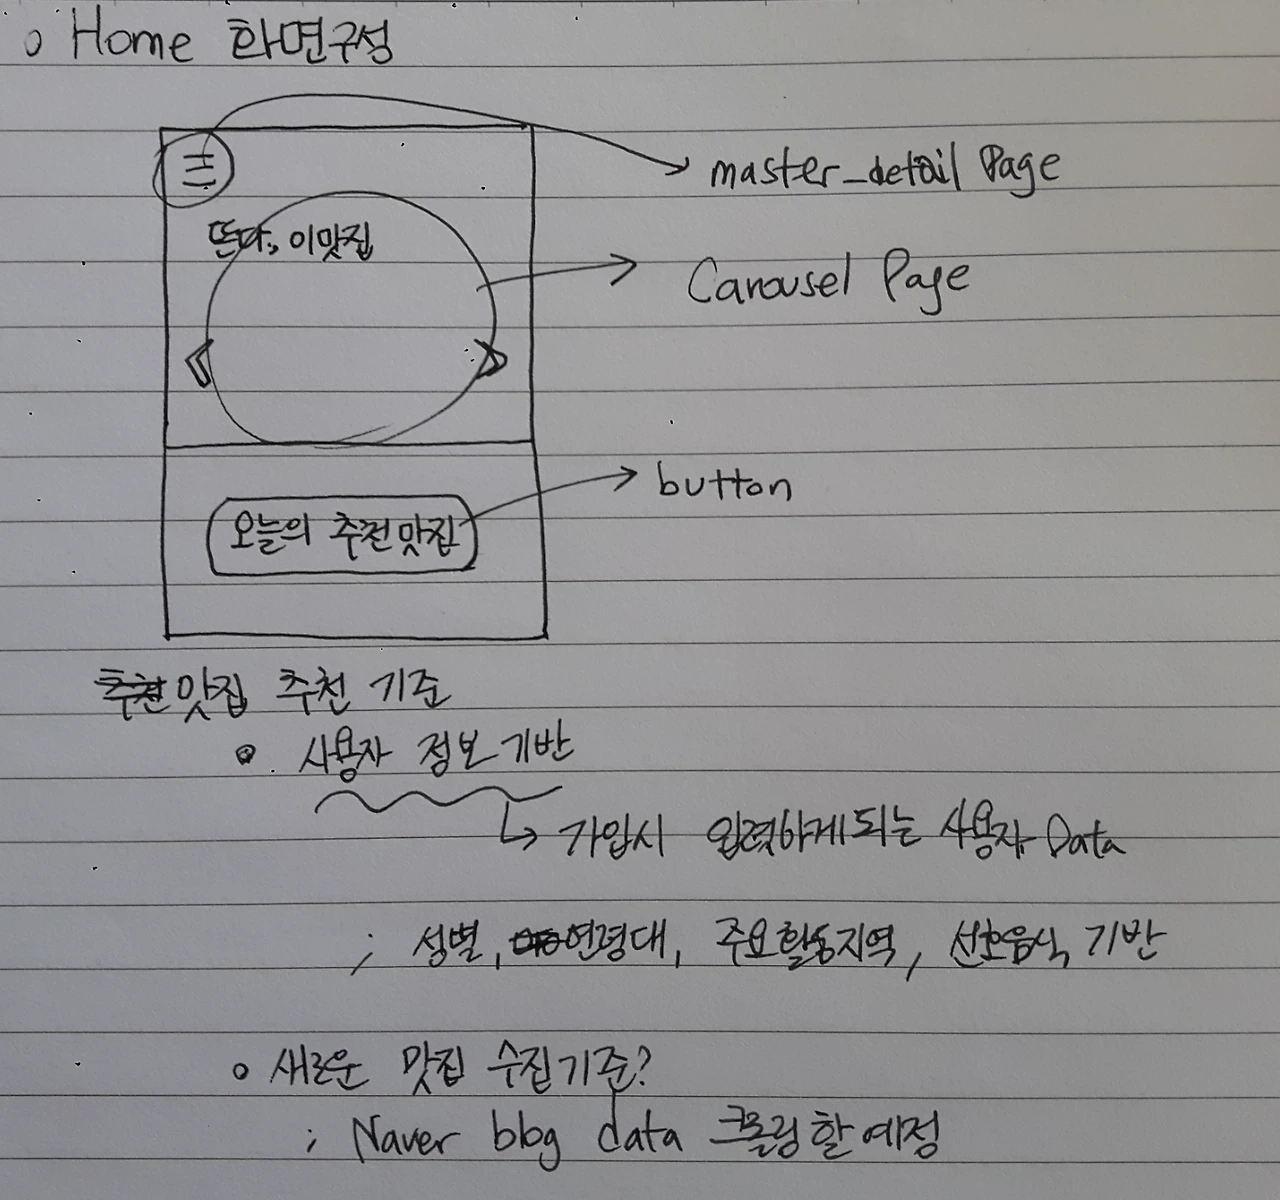 o Home 화면구성
master_detail Page
뜬다, 이맛집
Carousel Page
button
오늘의 추천맛집
맛집 추천 기준
• 사용자 정보기반
↳ 가입시 입력하게되는 사용자 Data
; 성별, 연령대, 주요활동지역, 선호음식 기반
o 새로운 맛집 수집기준?
; Naver blog data 크롤링할예정